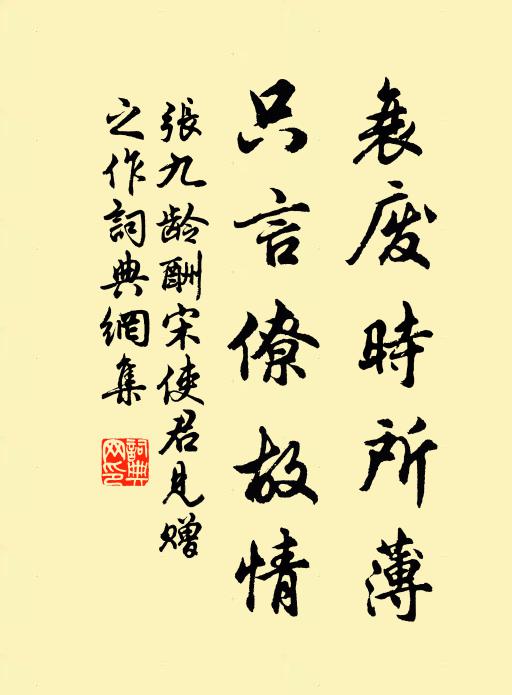 衰废時所薄
只言僚故情
張九龄酬宋使君見赠
之作詞典網集
詞典
网印